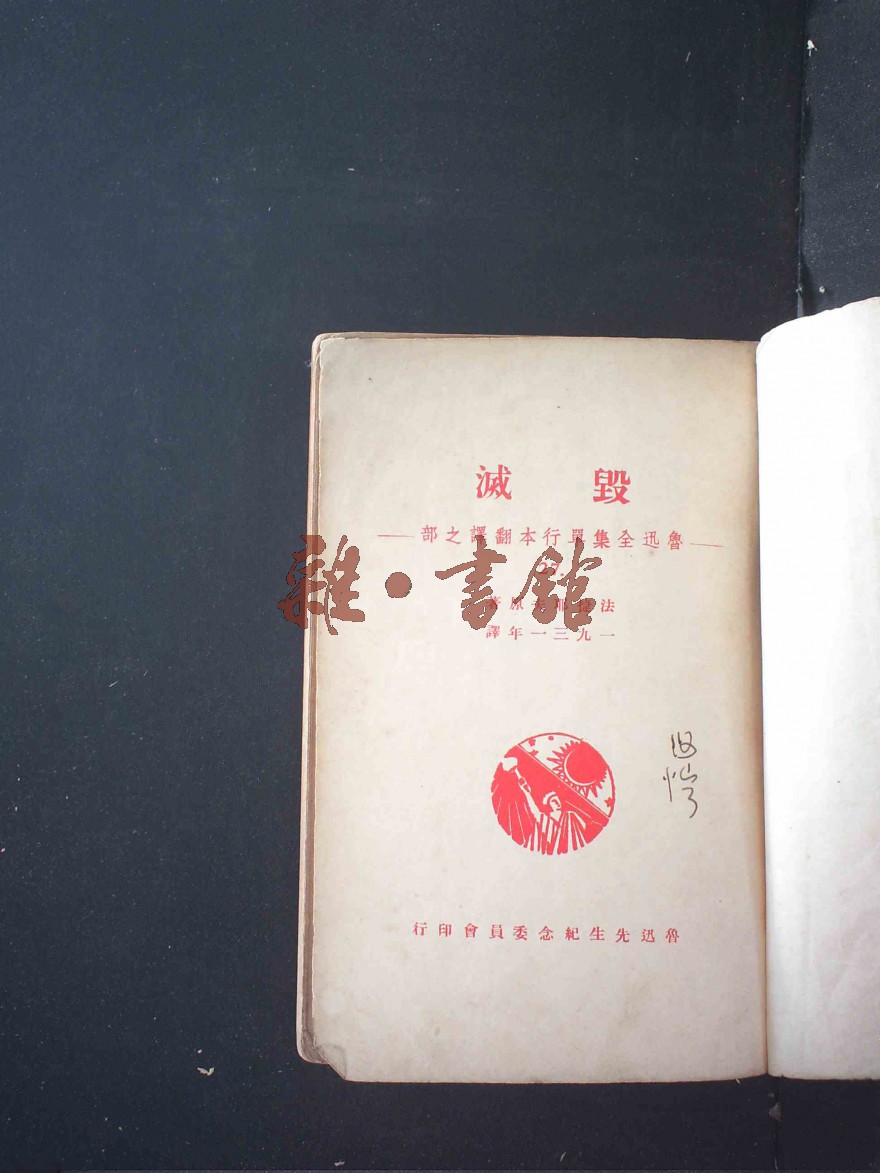 毀滅
魯迅全集單行本翻譯之部
雜·書館
法捷耶夫原著
一九三一年譯
魯迅先生紀念委員會印行